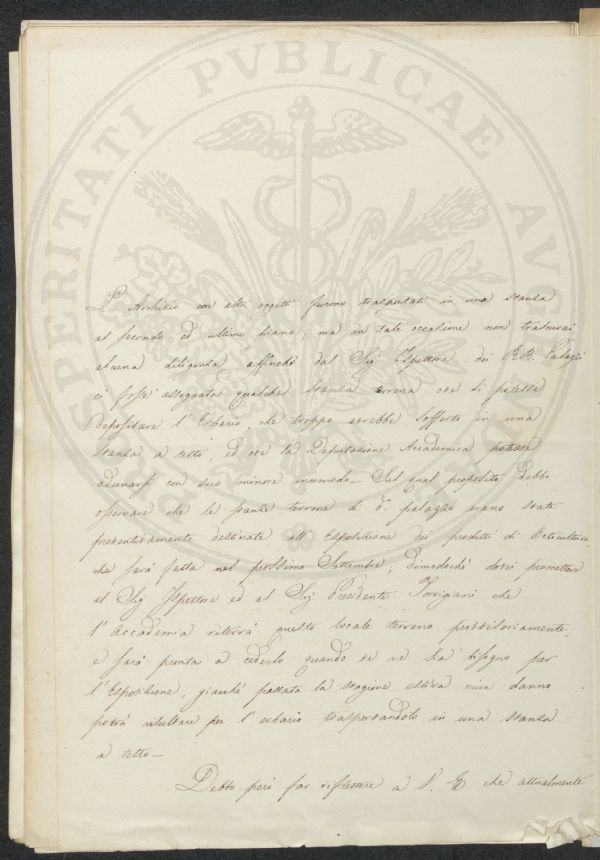 L'Archivio con altri oggetti furono trasportati in una stanza
al secondo ed ultimo piano; ma in tale occasione non trascurai
alcuna diligenza affinché dal Sig. Ispettore dei RR. Palazzi
ci fosse assegnata qualche stanza terrena ove si potesse
depositare l'Erbario, che troppo avrebbe sofferto in una
stanza a tetto, ed ove la Deputazione Accademica potesse
adunarsi con suo minore incomodo. Sul qual proposito debbo
osservare che le stanze terrene di do. palazzo erano state
preventivamente destinate all'Esposizione dei prodotti di Orticultura
che sarà fatta nel prossimo Settembre, dimodoché dovei promettere
al Sig. Ispettore ed al Sig. Presidente Torrigiani che
l'Accademia riterrà questo locale terreno provvisoriamente,
e sarà pronta a cederlo quando ve ne ha bisogno per
l'Esposizione, giacché passata la stagione estiva niun danno
potrà risultare per l'erbario trasportandolo in una stanza
a tetto —
Debbo però far riflettere a V. E. che attualmente
PROSPERITATI PVBLICAE AV